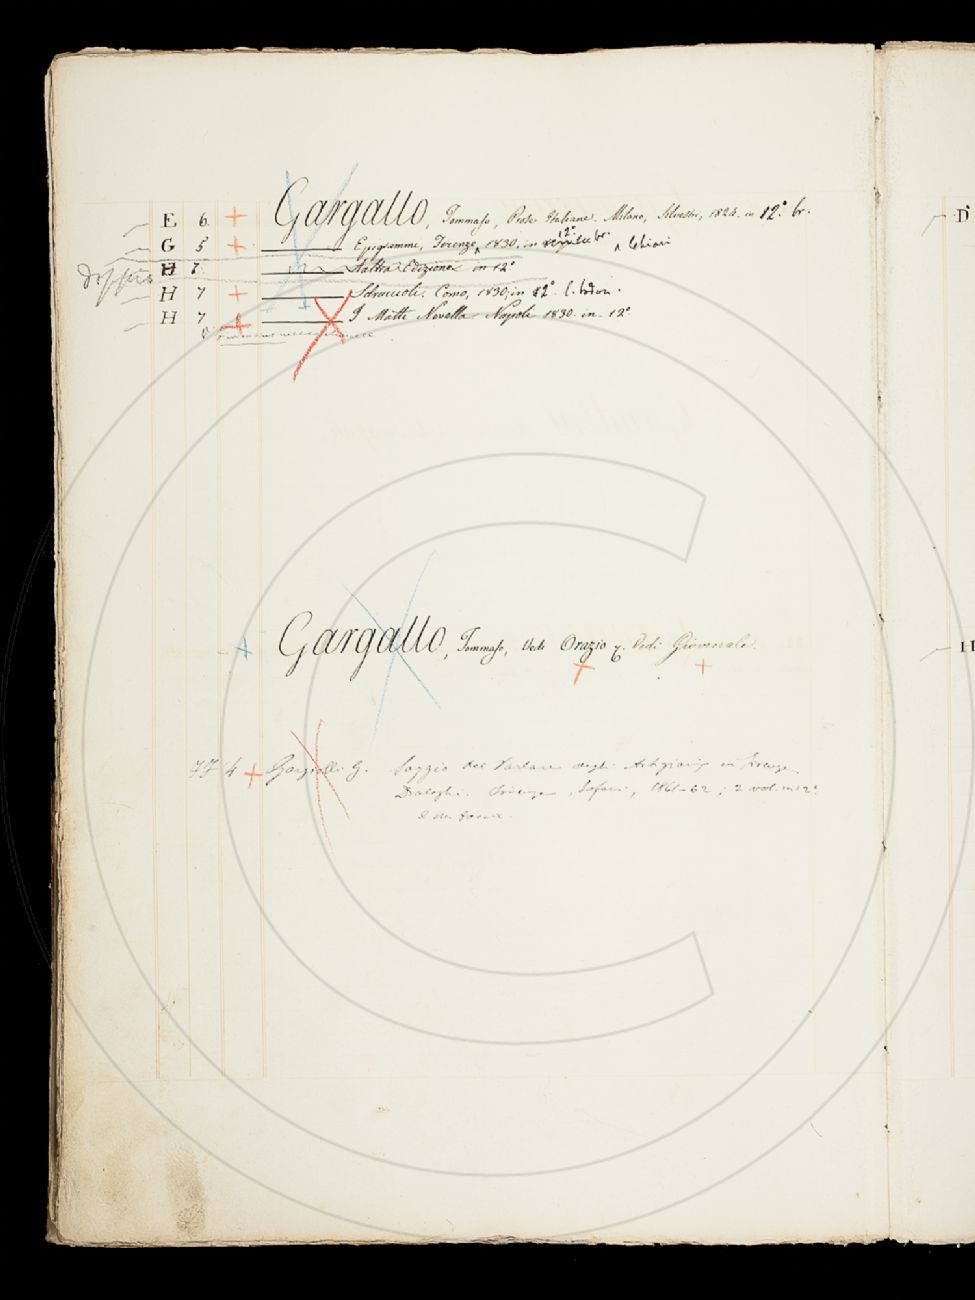 E 6 Gargallo, Tommaso, Prose Italiane. Milano, Silvestri, 1824. in 12.º br.
G 5 Epigrammi, Firenze, 1830, in 12.º br. Chiari
H 7 Altra Edizione in 12º
H 7 Sdraccioli. Como, 1830, in 12.º
H 7 Novella Napoli 1830. in 12º
Gargallo, Tommaso, Vedi Orazio e. Vedi Giovenale.
4 Gargiolli G. Saggio del Parlare degli Artigiani in Firenze
Dialoghi. Firenze, 1861-62; 2 vol. in 12º
D
H